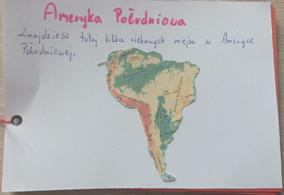 Ameryka Południowa
Znajdziesz tutaj kilka ciekawych miejsc w Ameryce
Południowej.